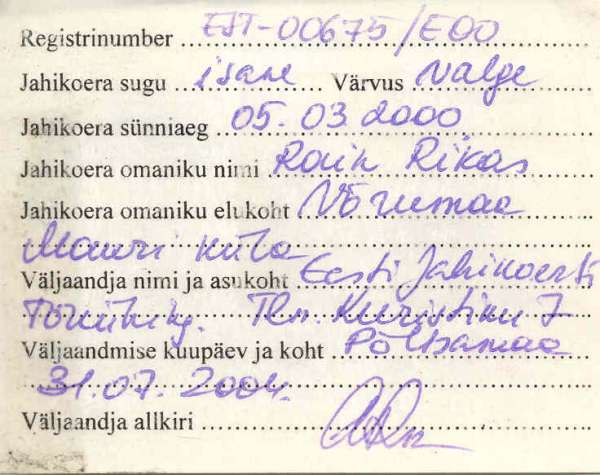 Registrinumber EST-00675/E00
Jahikoera sugu isane Värvus valge
Jahikoera sünniaeg 05.03 2000
Jahikoera omaniku nimi Rain Rikas
Jahikoera omaniku elukoht Võrumaa
Mauri küla
Väljaandja nimi ja asukoht Eesti Jahikoerte
Tõuühing. Tln. Kuristiku 7
Väljaandmise kuupäev ja koht Põltsamaa
31.07. 2004.
Väljaandja allkiri